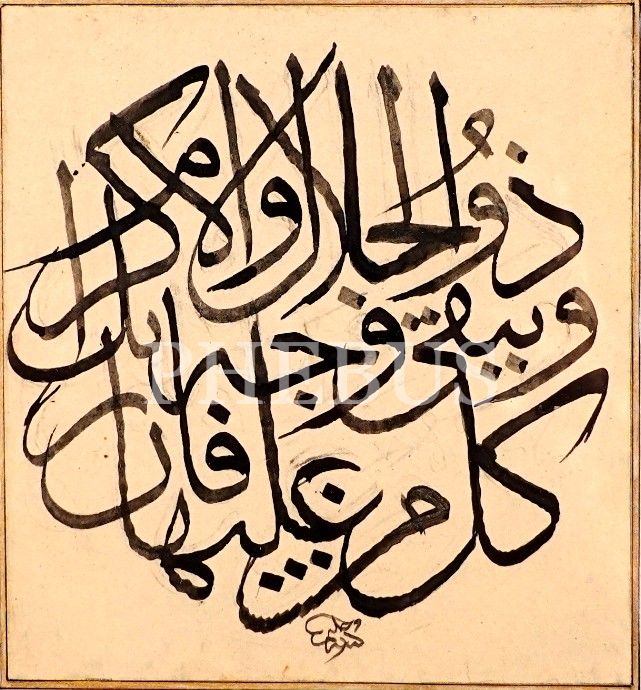 كل من عليها فان
ويبقى وجه ربك
ذو الجلال والاكرام
PHEBUS